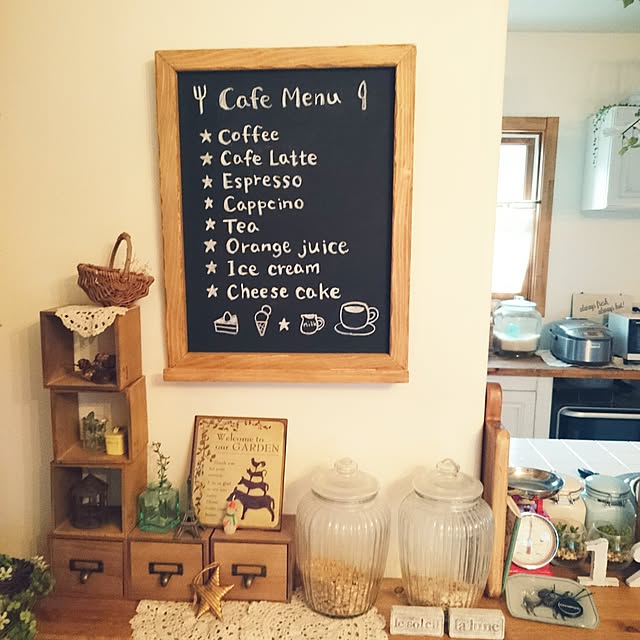 Cafe Menu
★ Coffee
★ Cafe Latte
★ Espresso
★ Cappcino
★ Tea
★ Orange juice
★ Ice cream
★ Cheese cake
milk
Welcome to
our GARDEN
le soleil
la lune
1